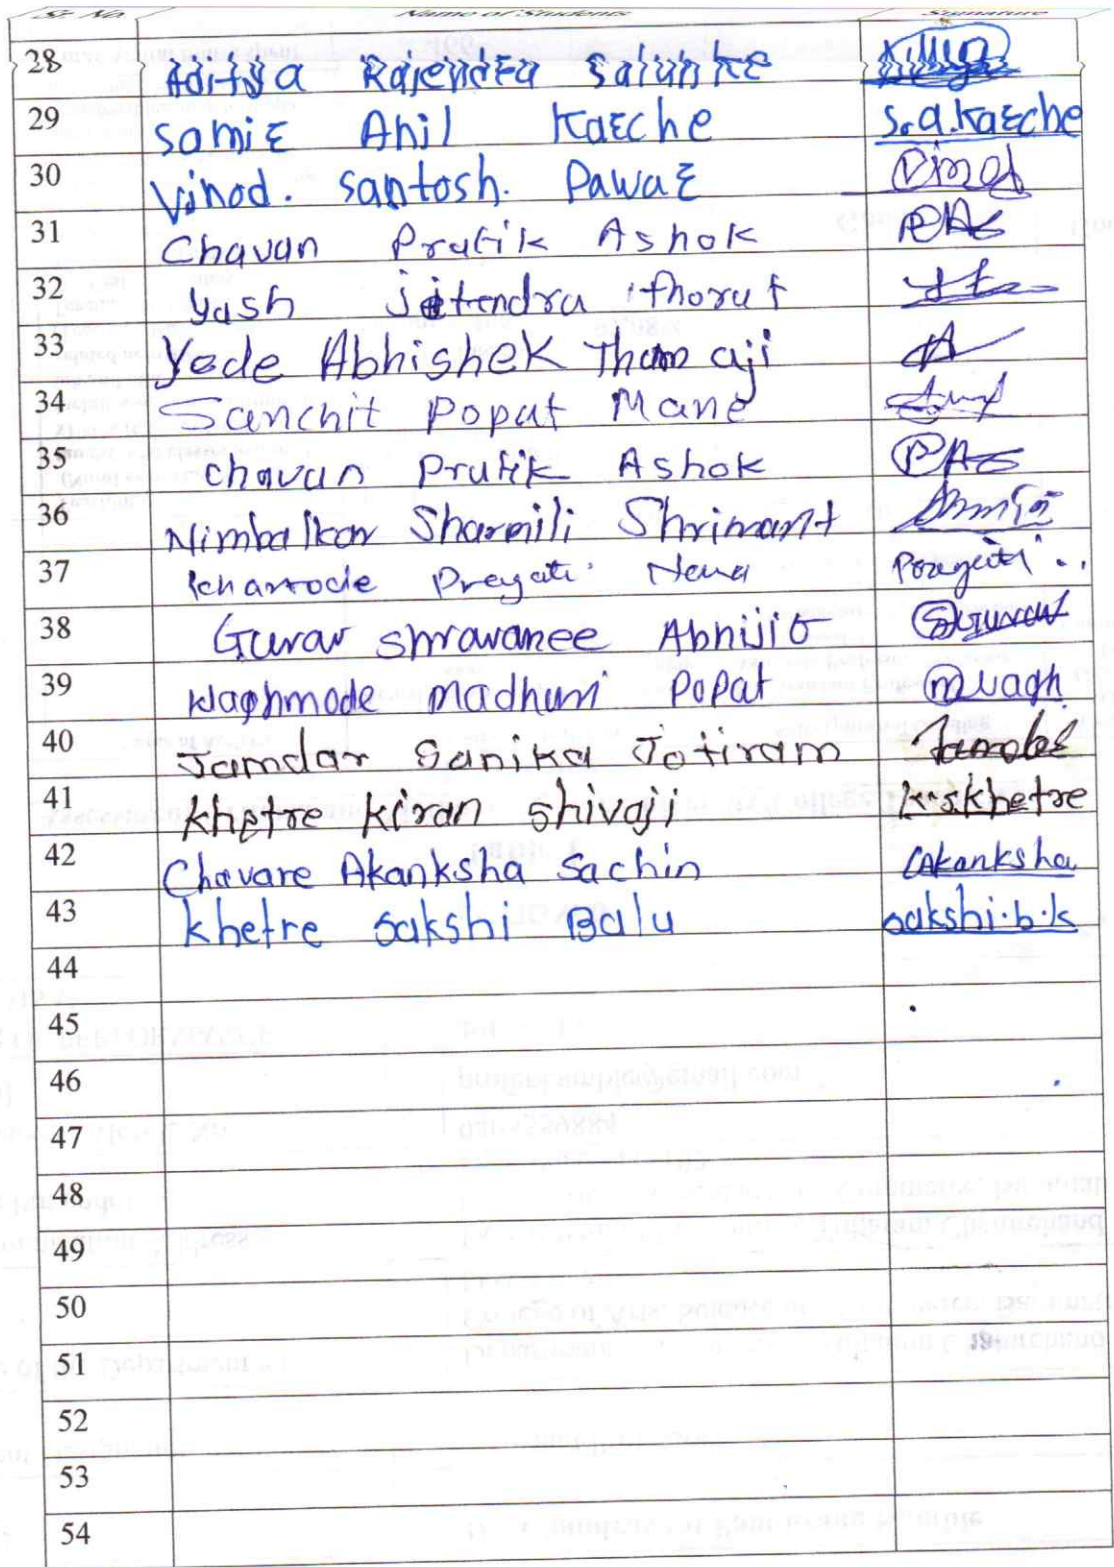 Sr. No Name of Students Signature
28 Aditya Rajendra Salunke
29 Samir Anil Karche S.a.Karche
30 Vinod. Santosh. Pawar Vinod
31 Chavan Pratik Ashok PAC
32 Yash Jitendra thorat
33 Yede Abhishek Thamaji A
34 Sanchit Popat Mane
35 Chavan Pratik Ashok PAC
36 Nimbalkar Sharmili Shrimant
37 Pragati Pragati
38 Gurav Shravanee Abhijit SGurav
39 Waghmode Madhuri Popat mwagh
40 Jamdar Sanika Jotiram Jamdar
41 Khetre Kiran Shivaji Kskhetre
42 Chavare Akanksha Sachin CAkanksha
43 khetre Sakshi Balu sakshi.b.k
44
45
46
47
48
49
50
51
52
53
54